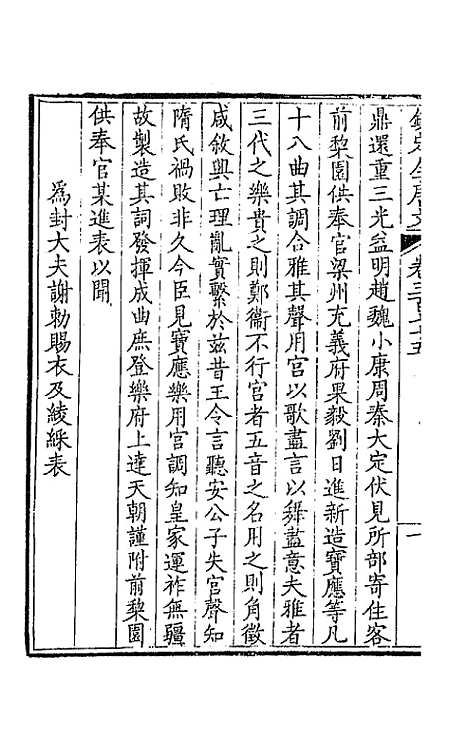 欽定全唐文 卷三百七十五 一
鼎還重三光益明趙魏小康周秦大定伏見所部寄住客
前黎園供奉官梁州充義府果毅劉日進新造寶應等凡
十八曲其調合雅其聲用宮以歌盡言以舞盡意夫雅者
三代之樂貴之則鄭衞不行宮者五音之名用之則角徵
咸敘興亡理亂實繫於兹昔王令言聽安公子失宮聲知
隋氏禍敗非久今臣見寶應樂用宮調知皇家運祚無疆
故製造其詞發揮成曲庶登樂府上達天朝謹附前黎園
供奉官某進表以聞
爲封大夫謝勅賜衣及綾綵表